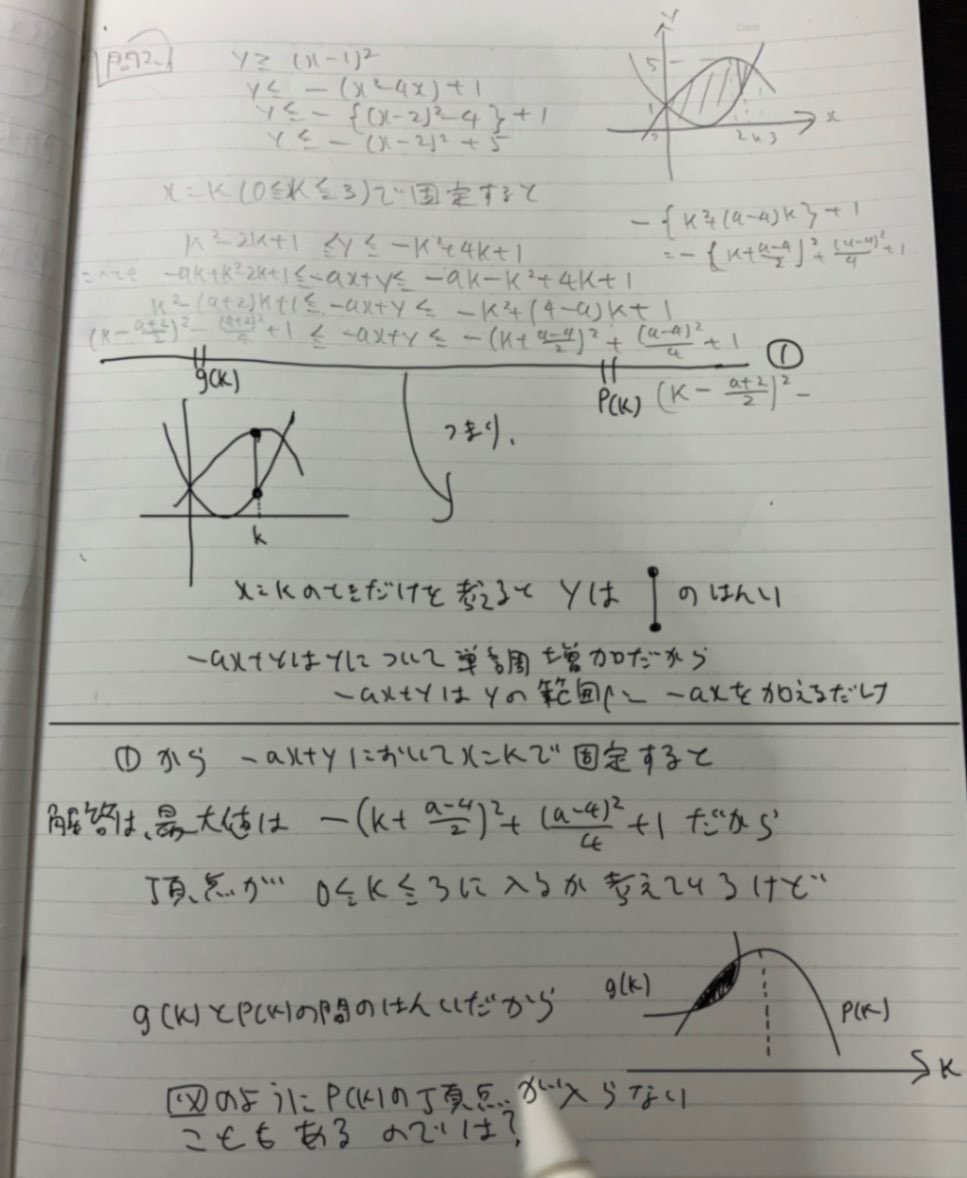 問2.
y≧(x-1)²
y≦-(x²-4x)+1
y≦-{(x-2)²-4}+1
y≦-(x-2)²+5
y
5
1
2 k 3
x
x=k(0≦k≦3)で固定すると
k²-2k+1≦y≦-k²+4k+1
-ak+k²-2k+1≦-ax+y≦-ak-k²+4k+1
k²-(a+2)k+1≦-ax+y≦-k²+(4-a)k+1
(k-\frac{a+2}{2})²-\frac{(a+2)²}{4}+1≦-ax+y≦-(k+\frac{a-4}{2})²+\frac{(a-4)²}{4}+1
-{k²+(a-4)k}+1
=-{k+\frac{a-4}{2}}²+\frac{(a-4)²}{4}+1
①
g(k)
P(k)
(k-\frac{a+2}{2})²-
つまり、
k
x=kのときだけを考えると yは のはんい
-ax+yはyについて単調増加だから
-ax+yはyの範囲に-axを加えるだけ
①から -ax+yにおいてx=kで固定すると
解答は、最大値は -(k+\frac{a-4}{2})²+\frac{(a-4)²}{4}+1 だから
頂点が 0≦k≦3に入るか考えているけど
g(k)とP(k)の間のはんいだから
g(k)
P(k)
k
図のようにP(k)の頂点が入らない
こともあるのでは?